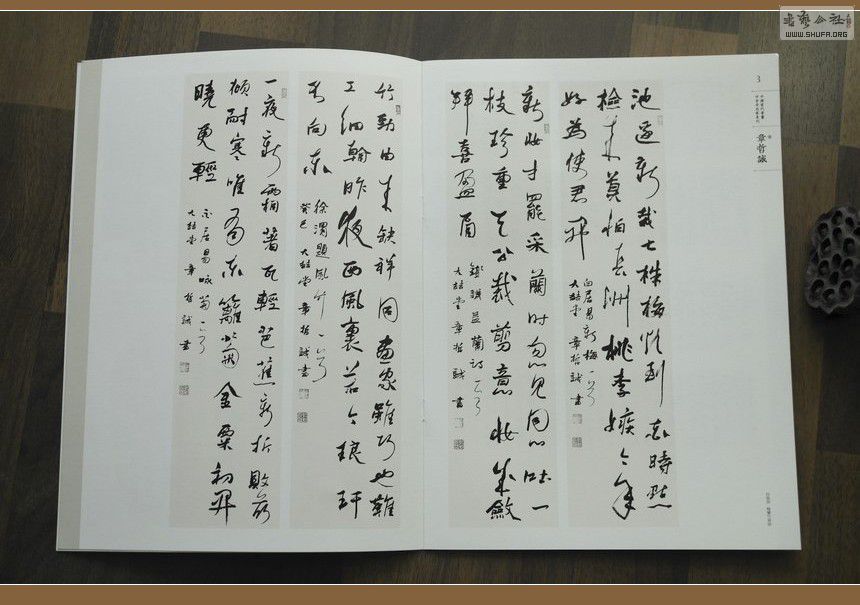 書藝公社
WWW.SHUFA.ORG
3
章哲誠
池邊新栽七株梅欲到花時點
檢來莫怕長洲桃李嫉今年
好為使君開
白居易新梅一首
大喆堂章哲誠書
新妝才罷采蘭時忽見同心吐一
枝珍重天公裁剪意妝成斂
拜喜盈眉
錢謙益蘭詩一首
大喆堂章哲誠書
竹勁由來缺祥同畫家雖巧也難
工細翰昨夜西風裏若个琅玕
不向東
徐渭題風竹一首
癸巳大喆堂章哲誠書
一夜新霜著瓦輕芭蕉新折敗荷
傾耐寒唯有東籬菊金粟初開
曉更輕
白居易咏菊一首
大喆堂章哲誠書